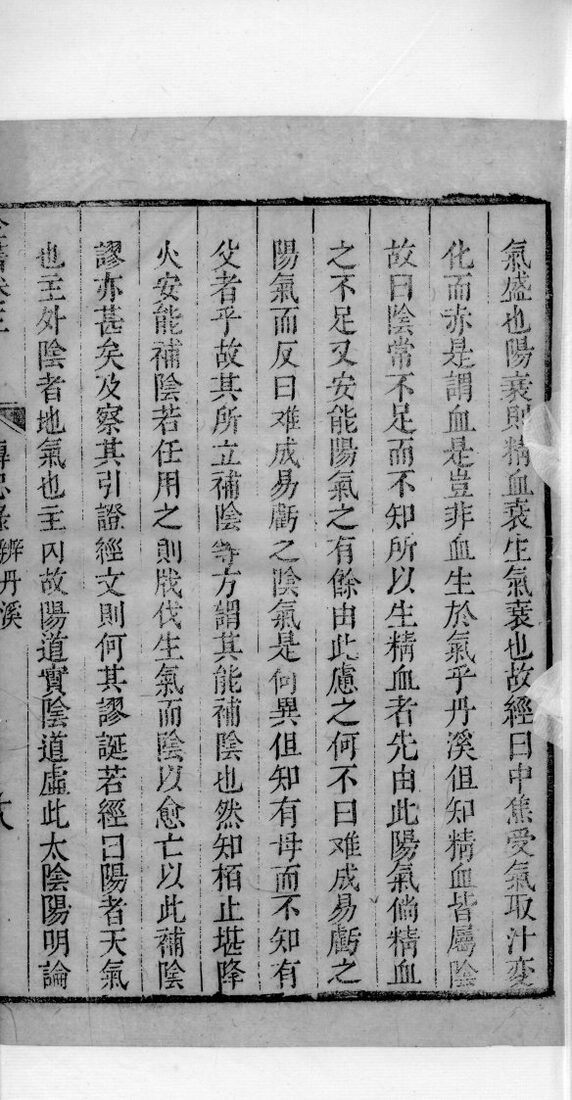 氣盛也陽衰則精血衰生氣衰也故經曰中焦受氣取汁變
化而赤是謂血是豈非血生於氣乎丹溪但知精血皆屬陰
故曰陰常不足而不知所以生精血者先由此陽氣倘精血
之不足又安能陽氣之有餘由此慮之何不曰难成易虧之
陽氣而反曰难成易虧之陰氣是何異但知有母而不知有
父者乎故其所立補陰等方謂其能補陰也然知栢止堪降
火安能補陰若任用之則戕伐生氣而陰以愈亡以此補陰
謬亦甚矣及察其引證經文則何其謬誕若經曰陽者天氣
也主外陰者地氣也主内故陽道實陰道虛此太陰陽明論
全書卷三 傳忠錄 辨丹溪